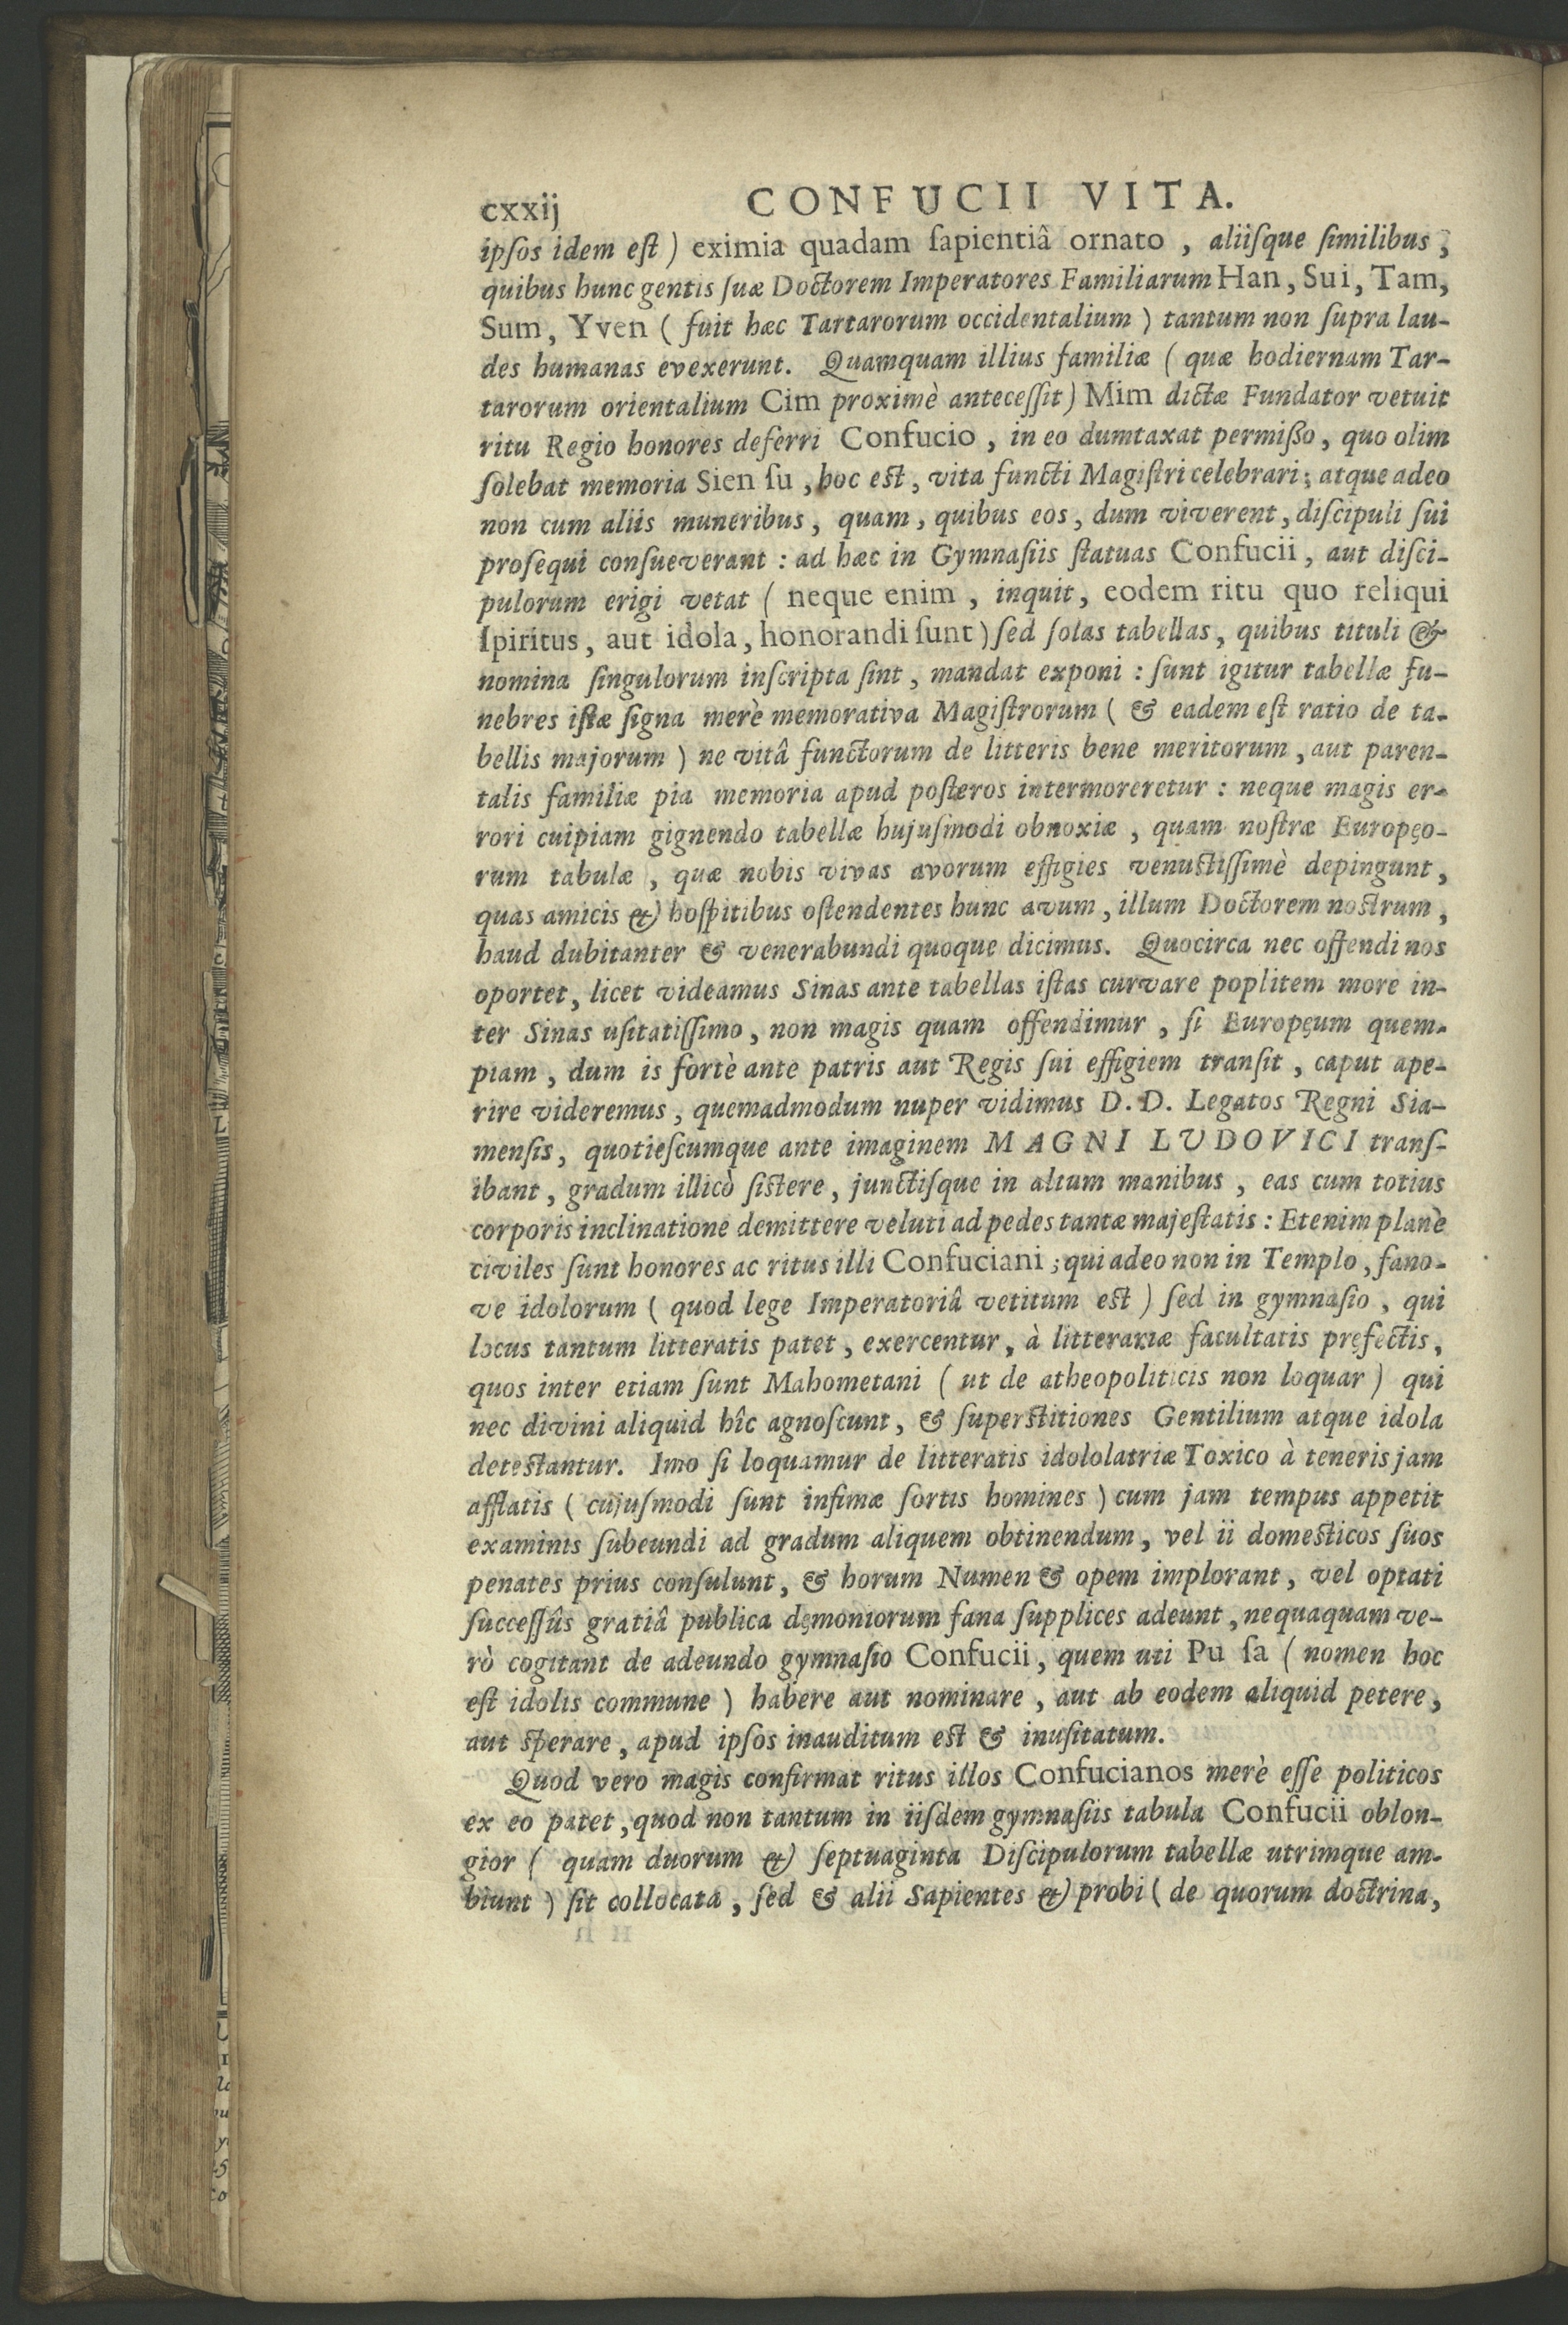 cxxij CONFUCII VITA.
ipſos idem eſt ) eximia quadam ſapientiâ ornato , aliiſque ſimilibus ,
quibus hunc gentis ſuæ Doctorem Imperatores Familiarum Han , Sui , Tam,
Sum, Yven ( fuit hæc Tartarorum occidentalium ) tantum non ſupra lau-
des humanas evexerunt. Quamquam illius familiæ ( quæ hodiernam Tar-
tarorum orientalium Cim proximè anteceſſit ) Mim dictæ Fundator vetuit
ritu Regio honores deferri Confucio , in eo dumtaxat permißo, quo olim
ſolebat memoria Sien ſu , hoc eſt , vita functi Magiſtri celebrari ; atque adeo
non cum aliis muneribus , quam , quibus eos , dum viverent , diſcipuli ſui
proſequi conſueverant : ad hæc in Gymnaſiis ſtatuas Confucii , aut diſci-
pulorum erigi vetat ( neque enim , inquit , eodem ritu quo reliqui
ſpiritus, aut idola, honorandi ſunt ) ſed ſolas tabellas, quibus tituli &
nomina ſingulorum inſcripta ſint , mandat exponi : ſunt igitur tabellæ fu-
nebres iſtæ ſigna merè memorativa Magiſtrorum ( & eadem eſt ratio de ta-
bellis majorum ) ne vitâ functorum de litteris bene meritorum , aut paren-
talis familiæ pia memoria apud poſteros intermoreretur : neque magis er-
rori cuipiam gignendo tabellæ hujuſmodi obnoxiæ , quam noſtræ Europęo-
rum tabulæ , quæ nobis vivas avorum effigies venuſtiſſimè depingunt ,
quas amicis & hoſpitibus oſtendentes hunc avum , illum Doctorem noſtrum ,
haud dubitanter & venerabundi quoque dicimus. Quocirca nec offendi nos
oportet, licet videamus Sinas ante tabellas iſtas curvare poplitem more in-
ter Sinas uſitatiſſimo, non magis quam offendimur , ſi Europęum quem-
piam , dum is fortè ante patris aut Regis ſui effigiem tranſit , caput ape-
rire videremus , quemadmodum nuper vidimus D. D. Legatos Regni Sia-
menſis, quotieſcumque ante imaginem MAGNI LUDOVICI tranſ-
ibant , gradum illicò ſiſtere, junctiſque in altum manibus , eas cum totius
corporis inclinatione demittere veluti ad pedes tantæ majeſtatis : Etenim planè
civiles ſunt honores ac ritus illi Confuciani ; qui adeo non in Templo, fano-
ve idolorum ( quod lege Imperatoriâ vetitum eſt ) ſed in gymnaſio , qui
locus tantum litteratis patet , exercentur, à litterariæ facultatis pręfectis,
quos inter etiam ſunt Mahometani ( ut de atheopoliticis non loquar ) qui
nec divini aliquid hîc agnoſcunt , & ſuperſtitiones Gentilium atque idola
deteſtantur. Imo ſi loquamur de litteratis idololatriæ Toxico à teneris jam
afflatis ( cujuſmodi ſunt infimæ ſortis homines ) cum jam tempus appetit
examinis ſubeundi ad gradum aliquem obtinendum , vel ii domeſticos ſuos
penates prius conſulunt , & horum Numen & opem implorant , vel optati
ſucceſſûs gratiâ publica dęmoniorum fana ſupplices adeunt , nequaquam ve-
rò cogitant de adeundo gymnaſio Confucii , quem uti Pu ſa ( nomen hoc
eſt idolis commune ) habere aut nominare , aut ab eodem aliquid petere ,
aut ſperare , apud ipſos inauditum eſt & inuſitatum.
Quod vero magis confirmat ritus illos Confucianos merè eſſe politicos
ex eo patet , quod non tantum in iiſdem gymnaſiis tabula Confucii oblon-
gior ( quam duorum & ſeptuaginta Diſcipulorum tabellæ utrimque am-
biunt ) ſit collocata , ſed & alii Sapientes & probi ( de quorum doctrina ,